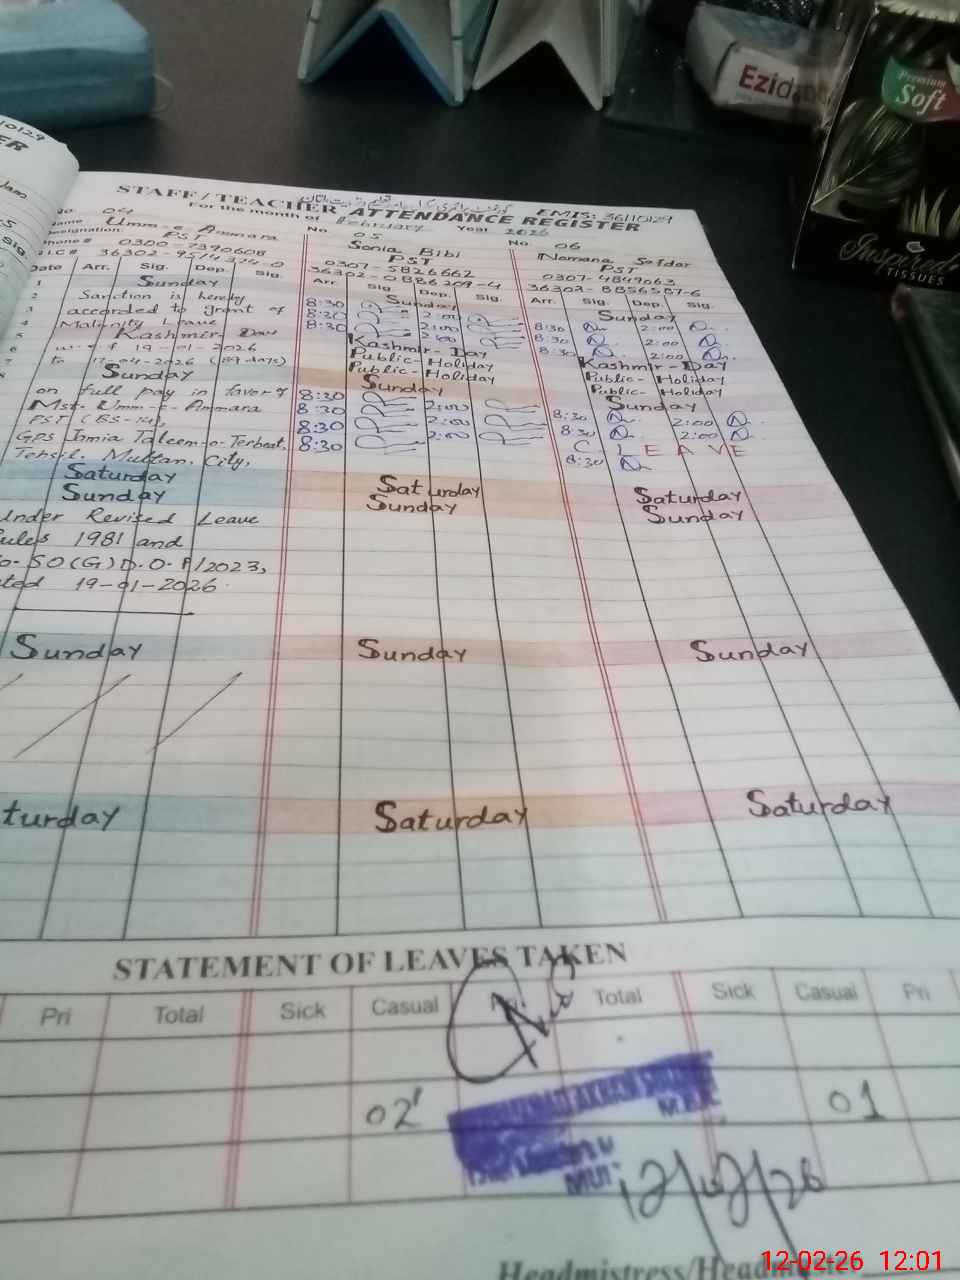 Ezi
Premium
Soft
Inspired
TISSUES
STAFF / TEACHER ATTENDANCE REGISTER
EMIS: 36110129
For the month of February Year 2026
No. 04
Name Umm-e-Ammara
Designation: PST
Phone # 0300-7390608
No 05
Sonia Bibi
PST
0307-5826662
36302-0886209-4
No. 06
Namana Safdar
PST
0307-4849063
Date Arr. Sig. Dep. Sig.
Arr. Sig. Dep. Sig.
Arr. Sig. Dep. Sig.
1 Sunday
2 Sanction is hereby
3 accorded to grant of
4 Maternity Leave
5 Kashmir-Day
6 w.e.f 19-01-2026
7 to 17-04-2026 (89 days)
8 Sunday
on full pay in favor of
Mst. Umm-e-Ammara
PST (BS-14),
GPS Jamia Taleem-o-Terbeat,
Tehsil. Multan. City,
Saturday
Sunday
Under Revised Leave
Rules 1981 and
SO(G) D.O.
19-01-2026
Sunday
turday
Sunday
8:30 2:00
8:30 2:00
8:30 2:00
Kashmir-Day
Public-Holiday
Public-Holiday
Sunday
8:30 2:00
8:30 2:00
8:30 2:00
8:30
Saturday
Sunday
Sunday
Saturday
Sunday
8:30 2:00
8:30 2:00
8:30 2:00
Kashmir-Day
Public-Holiday
Public-Holiday
Sunday
8:30 2:00
8:30 2:00
C-LEAVE
8:30
Saturday
Sunday
Sunday
Saturday
STATEMENT OF LEAVES TAKEN
Pri Total Sick Casual Total Sick Casual Pri
02 01
12/02/26
Headmistress/Headmaster
12-02-26 12:01